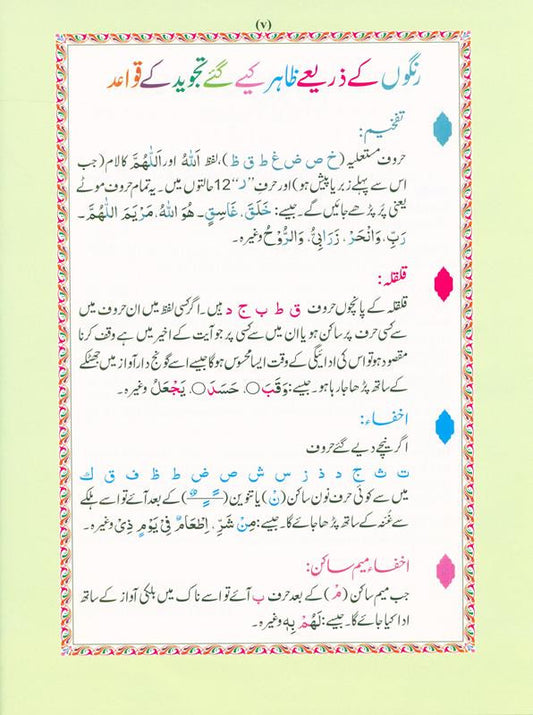 (٧)
رنگوں کے ذریعے ظاہر کیے گئے تجوید کے قواعد
تفخیم:
حروف مستعلیہ (خ ص ض غ ط ق ظ)، لفظ اَللّٰہُ اور اَللّٰھُمَّ کا لام (جب
اس سے پہلے زبر یا پیش ہو) اور حرفِ ”ر“ 12 حالتوں میں۔ یہ تمام حروف موٹے
یعنی پُر پڑھے جائیں گے۔ جیسے: خَلَقَ، غَاسِقٍ۔ هُوَ اللّٰهُ، مَرْيَمَ اللّٰهُمَّ۔
رَبِّ، وَانْحَرْ، زَرَابِيُّ، وَالرُّوْحُ وغیرہ۔
قلقلہ:
قلقلہ کے پانچوں حروف ق ط ب ج د ہیں۔ اگر کسی لفظ میں ان حروف میں
سے کسی حرف پر ساکن ہو یا ان میں سے کسی پر جو آیت کے اخیر میں ہے وقف کرنا
مقصود ہو تو اس کی ادائیگی کے وقت ایسا محسوس ہوگا جیسے اسے گونج دار آواز میں جھٹکے
کے ساتھ پڑھا جا رہا ہو۔ جیسے: وَقَبَ○، حَسَدَ○، يَجْعَلُ وغیرہ۔
اخفاء:
اگر نیچے دیے گئے حروف
ت ث ج د ذ ز س ش ص ض ط ظ ف ق ك
میں سے کوئی حرف نون ساکن (نْ) یا تنوین (ــًــٍــٌ) کے بعد آئے تو اسے ہلکے
سے غُنہ کے ساتھ پڑھا جائے گا۔ جیسے: مِنْ شَرِّ، اِطْعَامٌ فِيْ يَوْمٍ ذِيْ وغیرہ۔
اخفاء میم ساکن:
جب میم ساکن (مْ) کے بعد حرف ب آئے تو اسے ناک میں ہلکی آواز کے ساتھ
ادا کیا جائے گا۔ جیسے: لَهُمْ بِهٖ وغیرہ۔